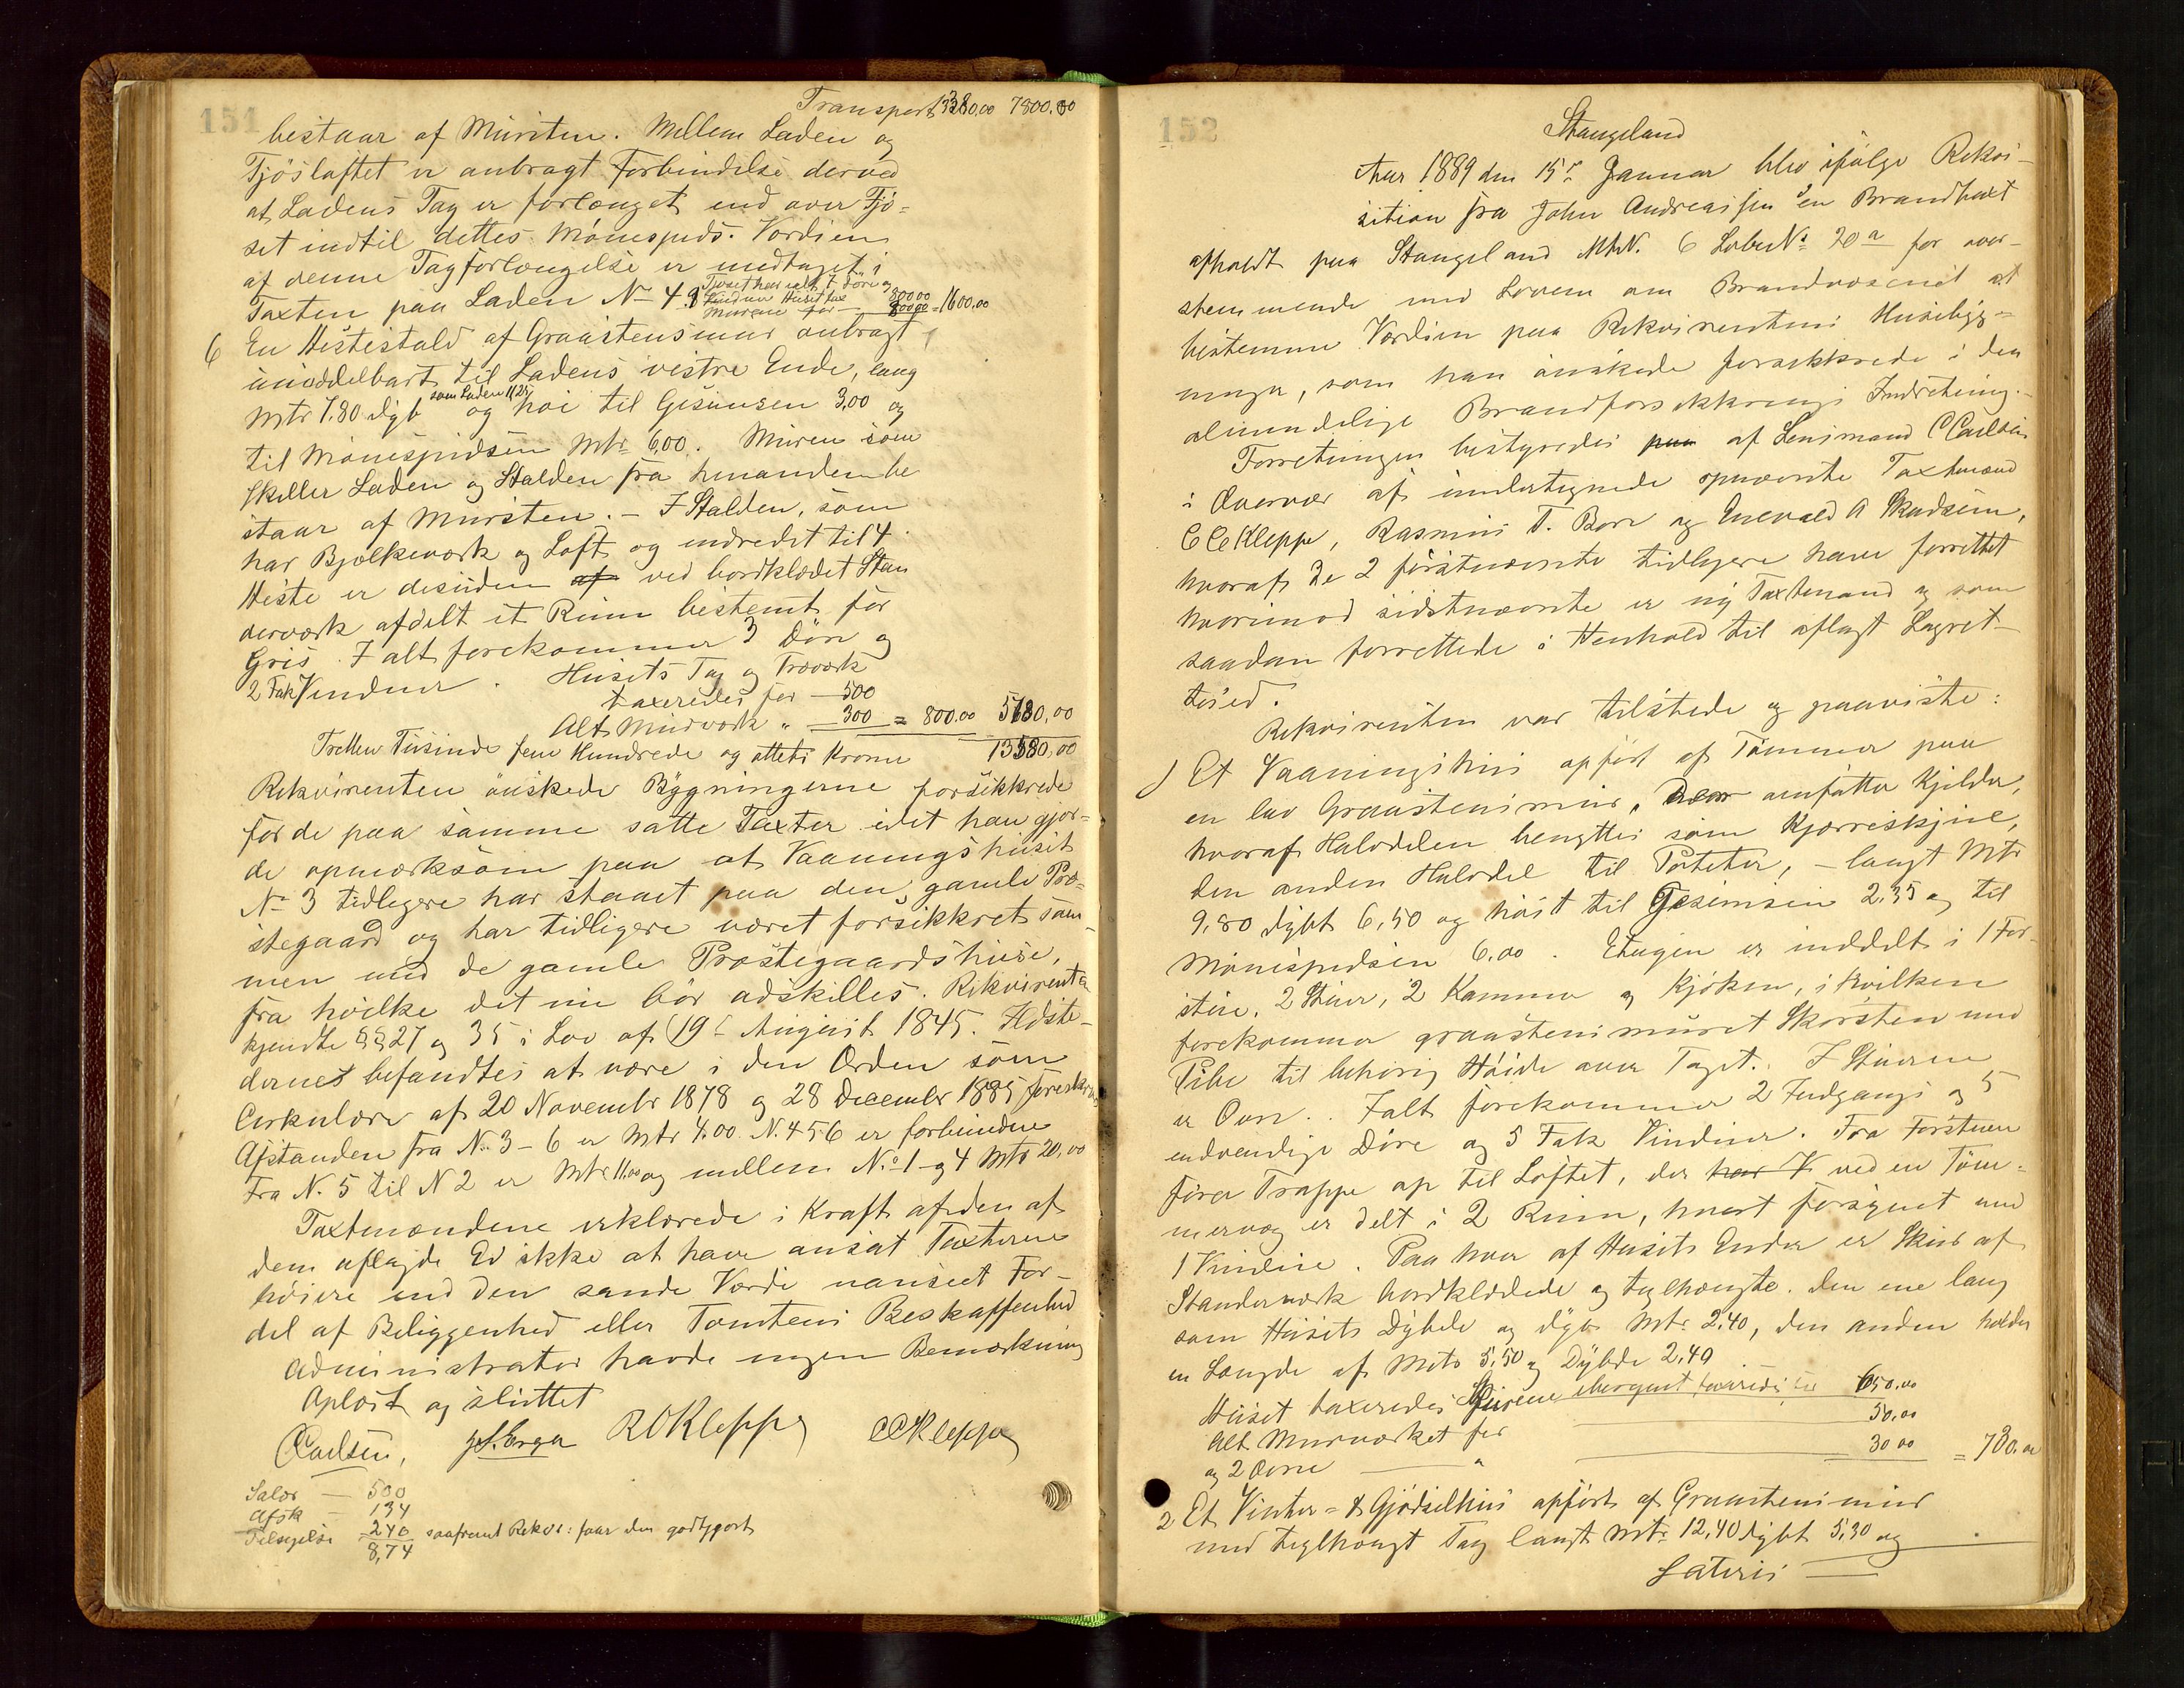 151
Transport 3380.00 7800.00
bestaar af Mursten. Mellem Laden og
Fjösloftet er anbragt Forbindelse derved
at Ladens Tag er forlænget ind over Fjö-
set indtil dettes Mönespids. Værdien
af denne Tagforlængelse er medtaget i
Taxten paa Laden No 4. Fjöset har ialt 7 Döre og
8 Vinduer Huset tax 800.00
Murene for 800.00 = 1600.00
6 En Hestestald af Graastensmur anbragt
umiddelbart til Ladens vestre Ende, lang
Mtr 7.80 dyb som Laden 11,25 og höi til Gesimsen 3,00 og
til Mönespidsen Mtr 6,00. Muren som
skiller Laden og Stalden fra hinanden be
staar af Mursten. – I Stalden, som
har Bjælkeværk og Loft og indredet til 4
Heste er desuden af ved bordklædet Stan
derværk afdelt et Rum bestemt for
Gris. Ialt forekommer 3 Döre og
2 Fak Vinduer. Husets Tag og Træværk
taxeredes for — 500
Alt Murværk " — 300 = 800.00 5780,00
Tretten Tusinde fem Hundrede og otteti Kroner 13580,00
Rekvirenten önskede Bygningerne forsikkrede
for de paa samme satte Taxter idet han gjor-
de opmærksom paa at Vaaningshuset
No 3 tidligere har staaet paa den gamle Præ-
stegaard og har tidligere været forsikkret sam-
men med de gamle Præstegaardshuse,
fra hvilke det nu bör adskilles. Rekvirenten
kjendte §§ 27 og 35 i Lov af 19de August 1845. Ildste-
dernes befandtes at være i den Orden som
Cirkulære af 20 November 1878 og 28 December 1885 foreskriver
Afstanden fra No 3 – 6 er Mtr 4.00 N. 4 5 6 er forbundne
Fra N. 5 til N 2 er Mtr 11.00 og mellem No 1 og 4 Mtr 20,00
Taxtmændene erklærede i Kraft af den af
dem aflagde Ed ikke at have ansat Taxterne
höiere end den sande Værdi uanseet For-
del af Beliggenhed eller Tomtens Beskaffenhed
Administrator havde ingen Bemærkning
Oplæst og sluttet
CCarlsen, RO Kleppe CC Kleppe
Salær — 500
Afsk — 134
Tilsigelse 240 saafremt Rekvi: faar den godtgjort
8,74
152
Stangeland
Aar 1889 den 15de Januar blev ifölge Rekvi-
sition fra John Andreassen en Brandtaxt
afholdt paa Stangeland MtrN. 6 LöbeNo 20a for over-
stemmende med Loven om Brandvæsenet at
bestemme Værdien paa Rekvirentens Husebyg-
ninger, som han önskede forsikkrede i den
almindelige Brandforsikkrings Indretning. -
Forretningen bestyredes paa af Lensmand CCarlsen
i Overvær af undertegnede opnævnte Taxtmænd
CC Kleppe, Rasmus T. Bore og Enevald A Skadsem,
hvoraf de 2 förstnævnte tidligere have forrettet
hvorimod sidstnævnte er ny Taxtmand og som
saadan forrettede i Henhold til aflagt Lagret-
tesed.
Rekvirenten var tilstede og paaviste:
1 Et Vaaningshus opfört af Tömmer paa
en lav Graastensmur, omfatter Kjelder,
hvoraf Halvdelen benyttes som Kjærreskjul,
den anden Halvdel til Poteter, – langt Mtr
9,80 dybt 6,50 og höit til Gesimsen 2,35 og til
Mönespidsen 6,00. Etagen er inddelt i 1 For-
stue, 2 Stuer, 2 Kammer og Kjöken, i hvilken
forekommer graastensmuret Skorsten med
Pibe til behörig Höide over Taget. I Stuerne
er Ovn. Ialt forekommer 2 Indgangs og 5
indvendige Döre og 5 Fak Vinduer. Fra Forstuen
förer Trappe op til Loftet, der har V ved en Töm-
mervæg er delt i 2 Rum, hvert forsynet med
1 Vindue. Paa hver af Husets Ender er Skur af
Standerværk bordklædede og teglhængte. Den ene lang
som Husets Dybde og dyb Mtr 2,40, den anden holder
en Længde af Mtr 5,50 og Dybde 2,40
Huset taxeredes Skurene iberegnet taxeredes for 650.00
Alt Murværket for 50,00
og 2 Ovne " 30 00 = 730.00
2 Et Vinter- & Gjödselhus opfört af Graastensmur
med teglhængt Tag langt Mtr 12,40 dybt 5,30 og
Lateris —